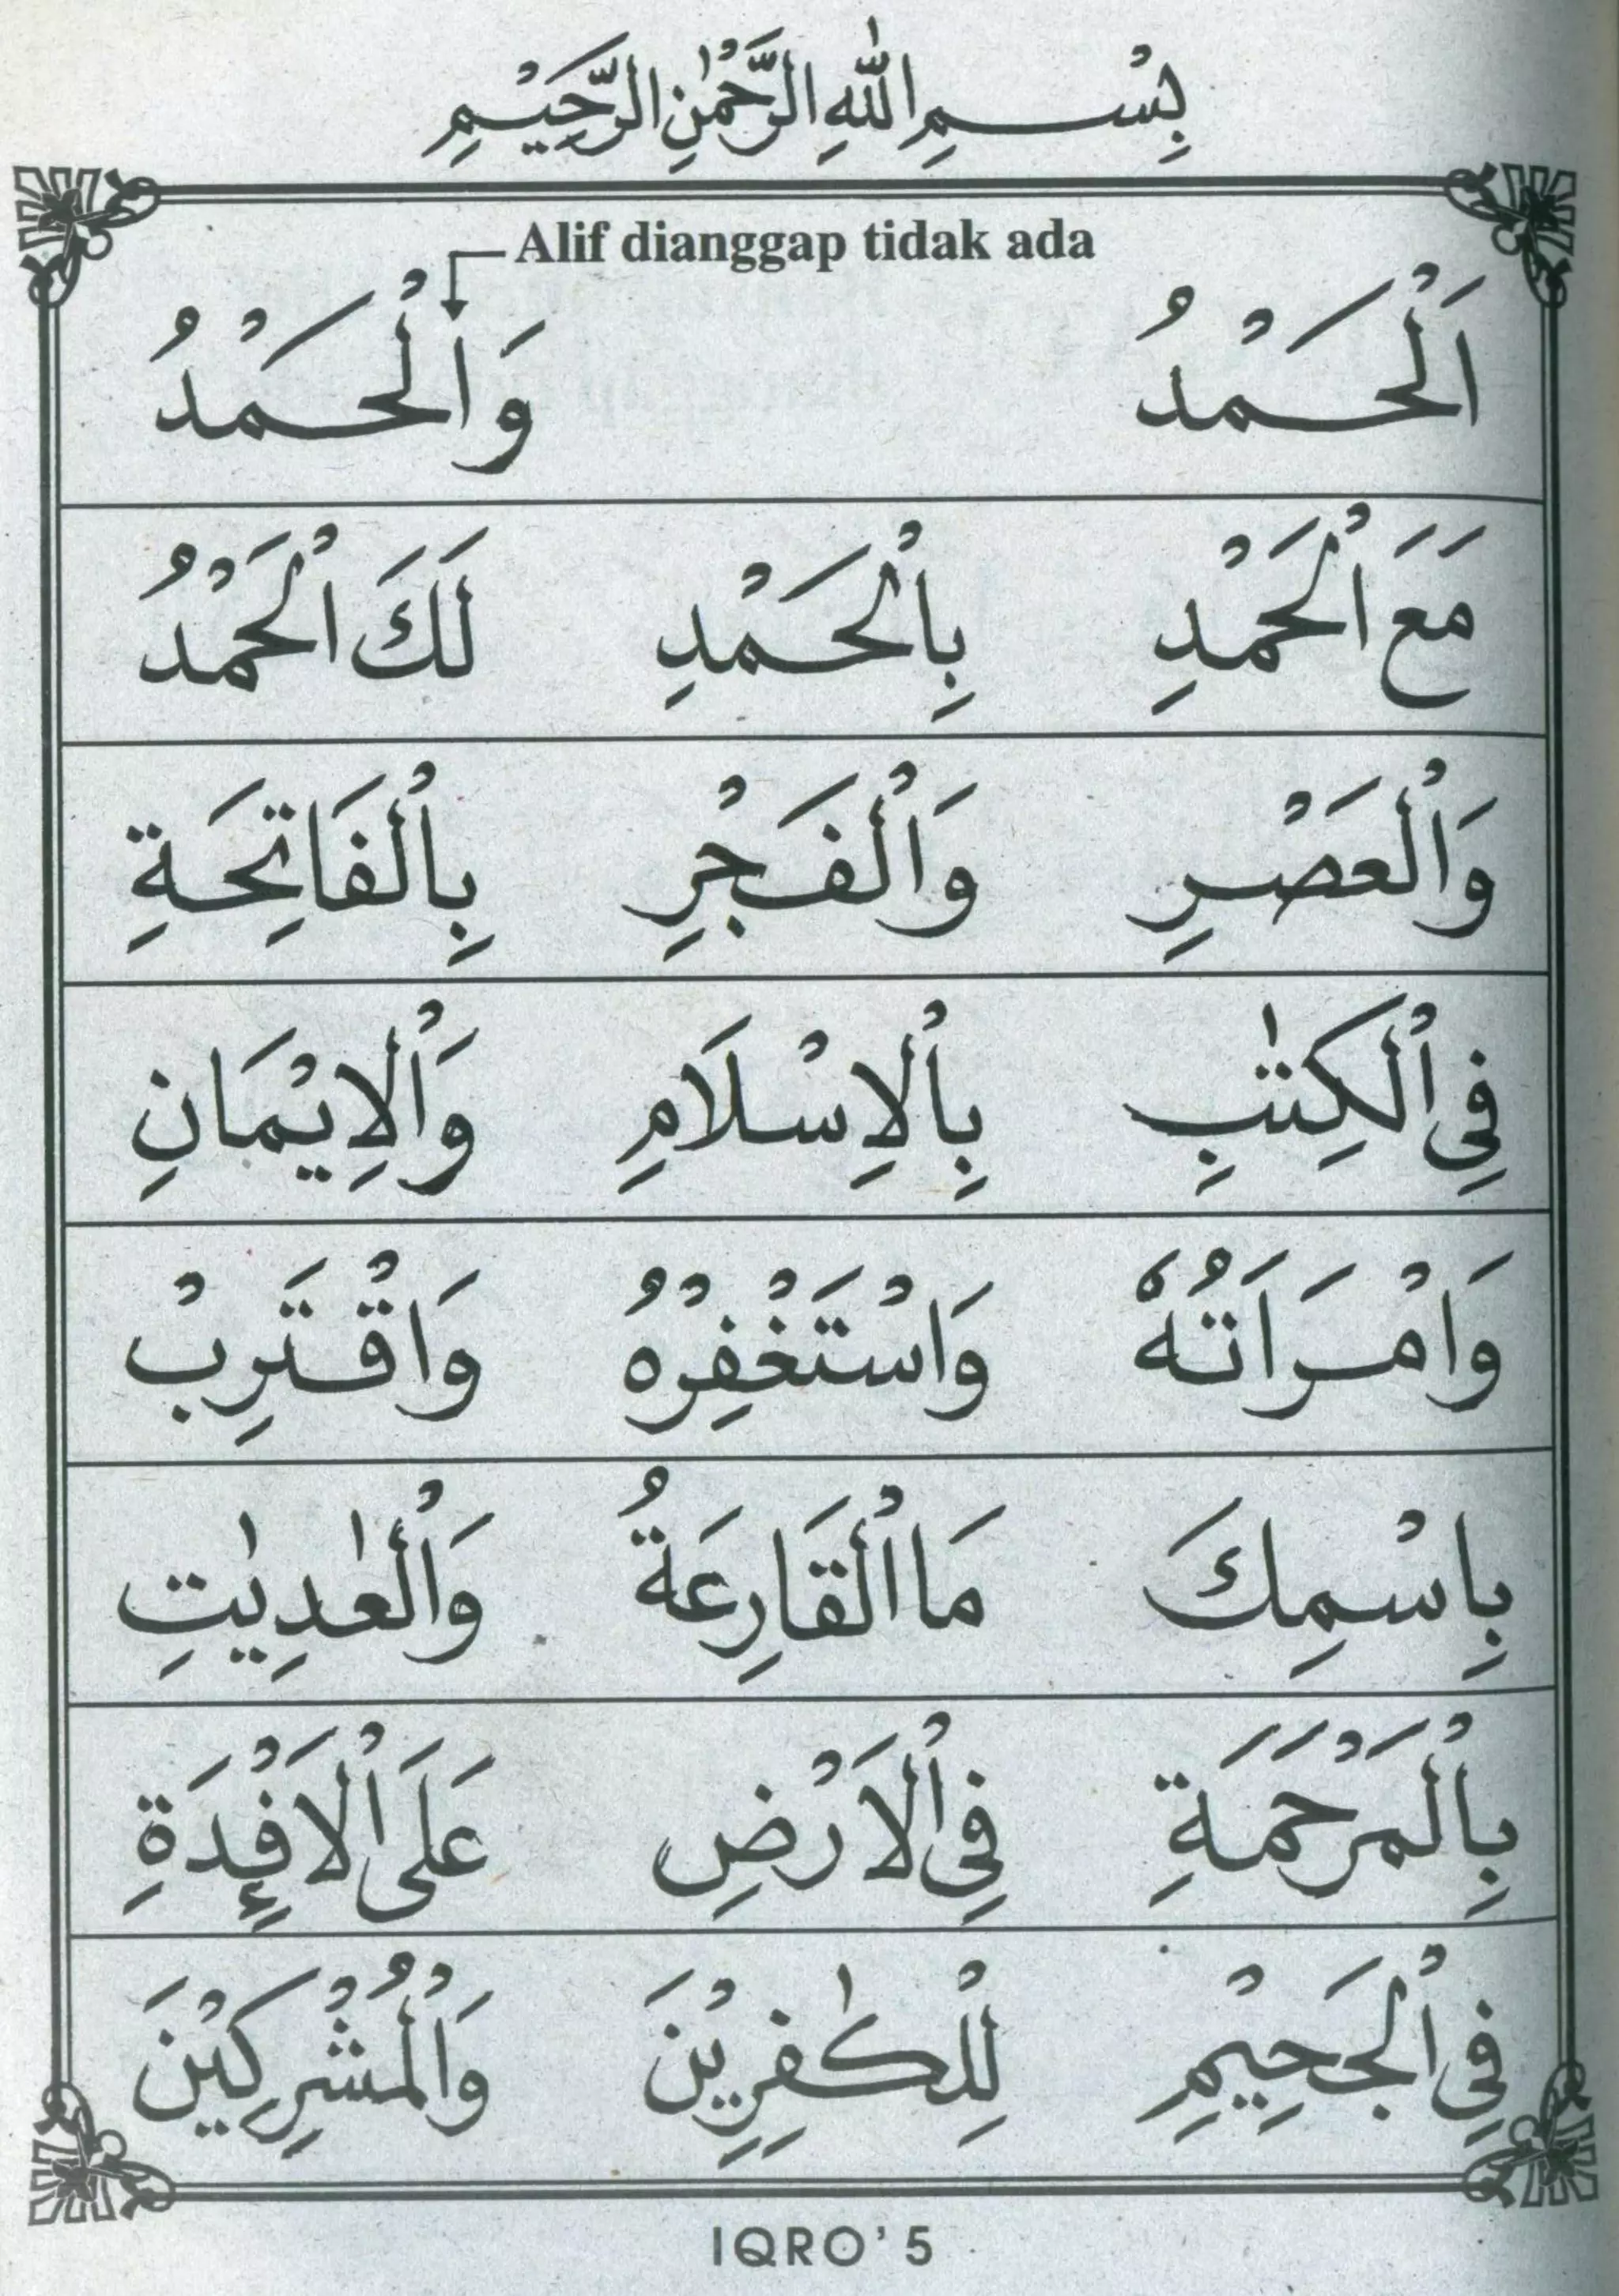 بِسْمِ اللّٰهِ الرَّحْمٰنِ الرَّحِيْمِ
Alif dianggap tidak ada
اَلْحَمْدُ وَالْحَمْدُ
مَعَ الْحَمْدِ بِالْحَمْدِ لَكَ الْحَمْدُ
وَالْعَصْرِ وَالْفَجْرِ بِالْفَاتِحَةِ
فِى الْكِتٰبِ بِالْاِسْلَامِ وَالْاِيْمَانِ
وَامْرَاَتُهٗ وَاسْتَغْفِرْهُ وَاقْتَرِبْ
بِاسْمِكَ مَا الْقَارِعَةُ وَالْعٰدِيٰتِ
بِالْمَرْحَمَةِ فِى الْاَرْضِ عَلَى الْاَفْـِٕدَةِ
فِى الْجَحِيْمِ لِلْكٰفِرِيْنَ وَالْمُشْرِكِيْنَ
IQRO' 5